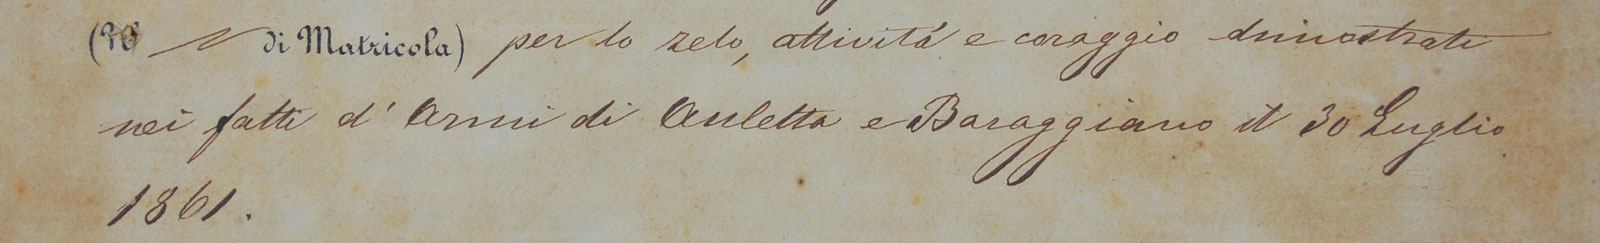 (N° di Matricola) per lo zelo, attività e coraggio dimostrati
nei fatti d' Armi di Auletta e Baraggiano il 30 Luglio
1861.